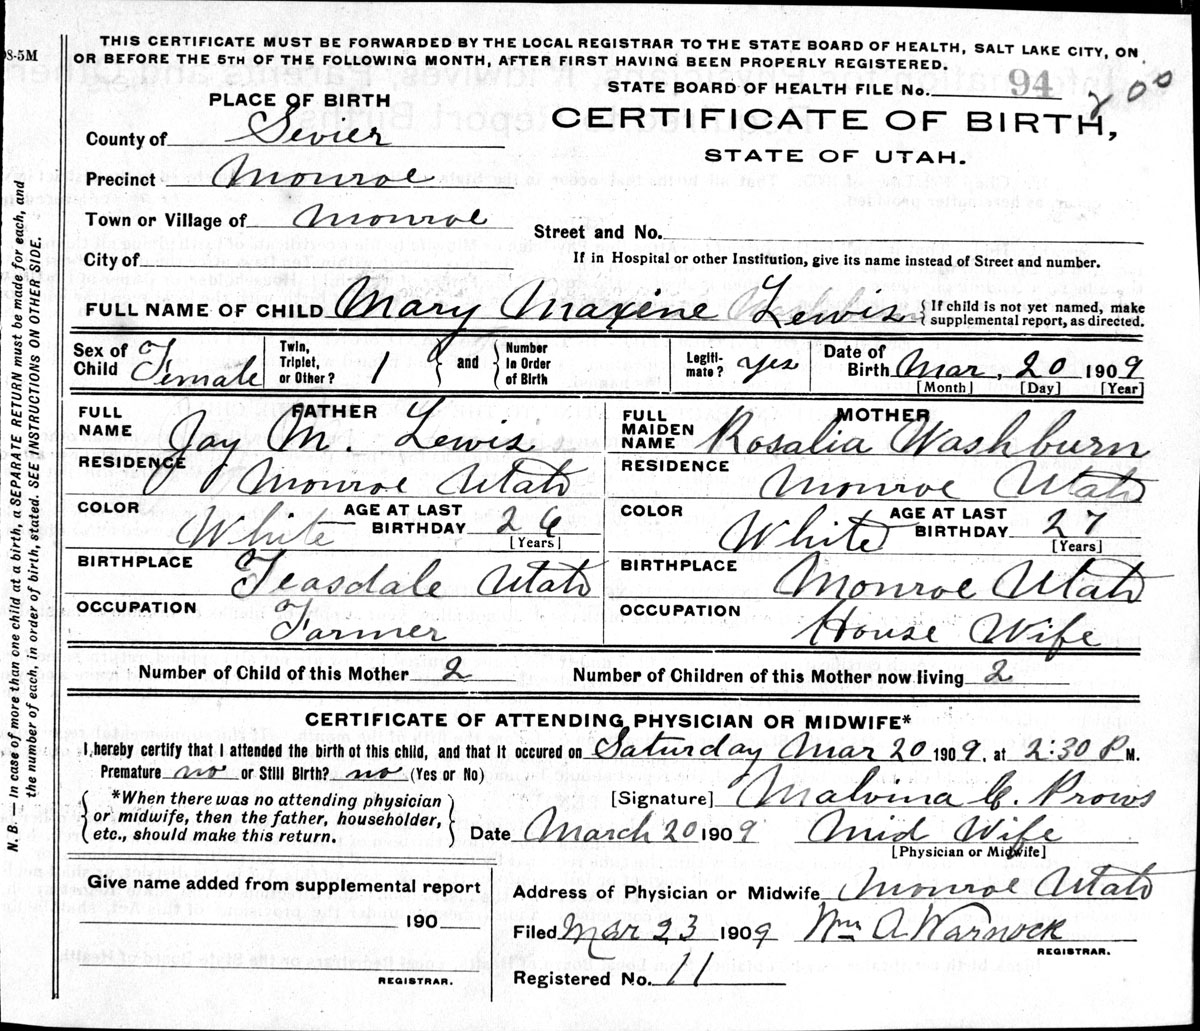 98-5M
THIS CERTIFICATE MUST BE FORWARDED BY THE LOCAL REGISTRAR TO THE STATE BOARD OF HEALTH, SALT LAKE CITY, ON
OR BEFORE THE 5TH OF THE FOLLOWING MONTH, AFTER FIRST HAVING BEEN PROPERLY REGISTERED.
STATE BOARD OF HEALTH FILE No. 94
200
PLACE OF BIRTH
CERTIFICATE OF BIRTH,
STATE OF UTAH.
County of Sevier
Precinct Monroe
Town or Village of Monroe
Street and No.
City of
If in Hospital or other Institution, give its name instead of Street and number.
FULL NAME OF CHILD Mary Maxene Lewis
{ If child is not yet named, make
supplemental report, as directed.
Sex of Child Female
Twin, Triplet, or Other? 1 } and { Number in Order of Birth
Legiti-mate? yes
Date of Birth Mar. 20 1909
[Month] [Day] [Year]
FATHER
FULL NAME Jay M. Lewis
RESIDENCE Monroe Utah
COLOR White AGE AT LAST BIRTHDAY 26
[Years]
BIRTHPLACE Teasdale Utah
OCCUPATION Farmer
MOTHER
FULL MAIDEN NAME Rosalia Washburn
RESIDENCE Monroe Utah
COLOR White AGE AT LAST BIRTHDAY 27
[Years]
BIRTHPLACE Monroe Utah
OCCUPATION House Wife
Number of Child of this Mother 2 Number of Children of this Mother now living 2
CERTIFICATE OF ATTENDING PHYSICIAN OR MIDWIFE*
I, hereby certify that I attended the birth of this child, and that it occured on Saturday Mar 20 1909, at 2:30 P M.
Premature no or Still Birth? no (Yes or No)
{ *When there was no attending physician
or midwife, then the father, householder,
etc., should make this return. }
[Signature] Malvina C. Prows
Date March 20 1909 Mid Wife
[Physician or Midwife]
Give name added from supplemental report
190
REGISTRAR.
Address of Physician or Midwife Monroe Utah
Filed Mar 23 1909 Wm A Warnock
REGISTRAR.
Registered No. 11
N. B.—In case of more than one child at a birth, a SEPARATE RETURN must be made for each, and
the number of each, in order of birth, stated. SEE INSTRUCTIONS ON OTHER SIDE.